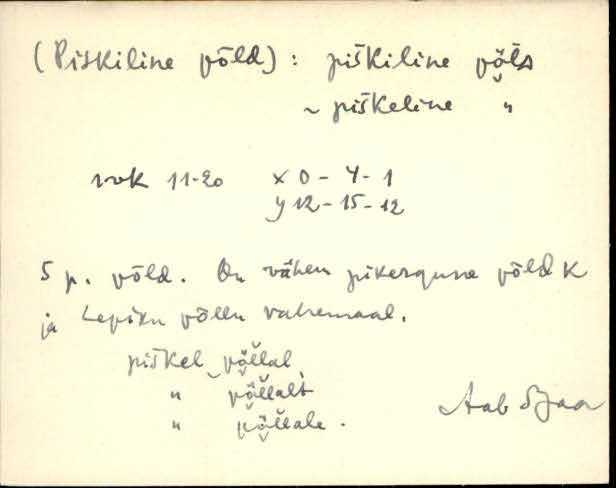 (Piskiline põld) : piškiline põ̭l̆ᴅ
~ piškeline "
vvk 11-20 x 0 - 4 - 1
y 12 - 15 - 12
5 p. põld. On vähem pikergune põld K
ja Lepiku põllu vahemaal.
piškel põ̭l̆lal
" põ̭l̆lalt
" põ̭l̆lale.